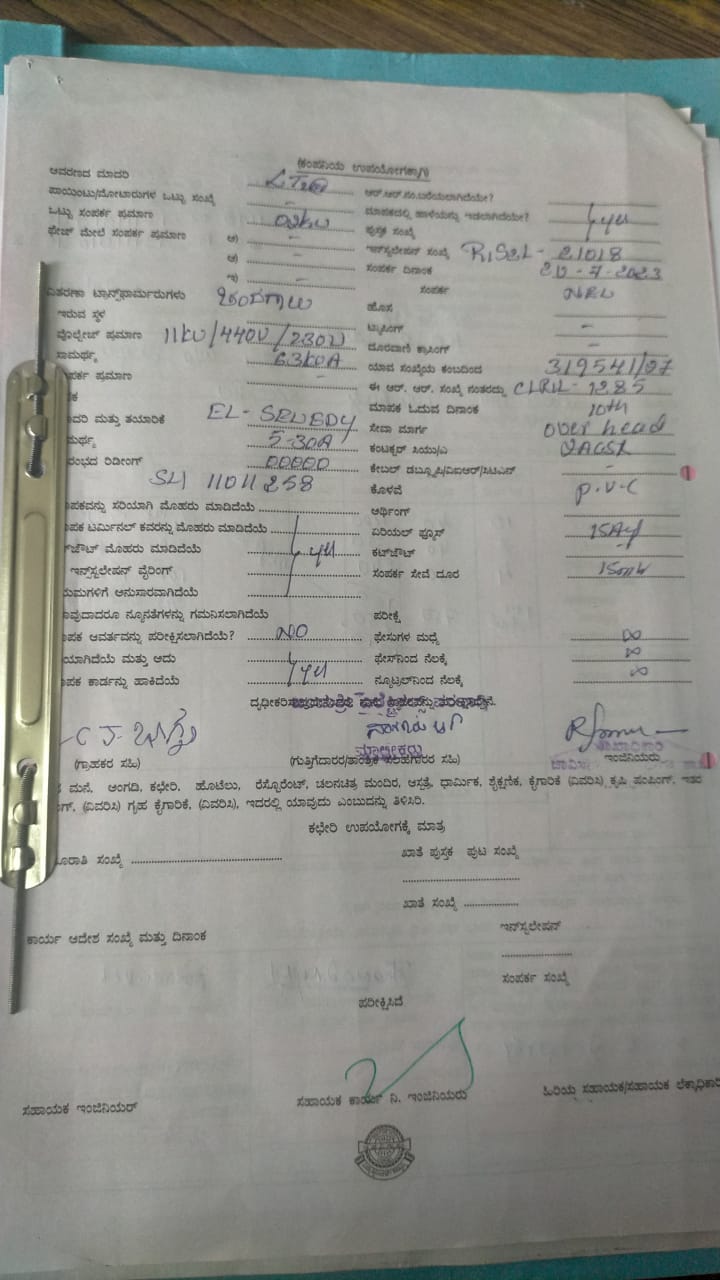 (ಕಂಪನಿಯ ಉಪಯೋಗಕ್ಕಾಗಿ)
ಆವರಣದ ಮಾದರಿ
ಪಾಯಿಂಟು/ಮೋಟಾರುಗಳ ಒಟ್ಟು ಸಂಖ್ಯೆ - ಆರ್.ಆರ್.ಸಂ.ಬರೆಯಲಾಗಿದೆಯೇ?
ಒಟ್ಟು ಸಂಪರ್ಕ ಪ್ರಮಾಣ ಮಾಪಕದಲ್ಲಿ ಹಾಳೆಯನ್ನು ಇಡಲಾಗಿದೆಯೇ? yes
ಫೇಜ್ ಮೇಲೆ ಸಂಪರ್ಕ ಪ್ರಮಾಣ ಅ) - ಪುಸ್ತಕ ಸಂಖ್ಯೆ
ಆ) - ಇನ್‌ಸ್ಟಲೇಷನ್ ಸಂಖ್ಯೆ 21018
ಇ) - ಸಂಪರ್ಕ ದಿನಾಂಕ 20-7-2023
ವಿತರಣಾ ಟ್ರಾನ್ಸ್‌ಫಾರ್ಮರುಗಳು ಸಂಪರ್ಕ
ಇರುವ ಸ್ಥಳ ಹೊಸ
ವೊಲ್ಟೇಜ್ ಪ್ರಮಾಣ 11KV/440V/230V ಟ್ಯಾಪಿಂಗ್ -
ಸಾಮರ್ಥ್ಯ 63KVA ದೂರವಾಣಿ ಕ್ರಾಸಿಂಗ್ -
ಪರ್ಕ ಪ್ರಮಾಣ - ಯಾವ ಸಂಖ್ಯೆಯ ಕಂಬದಿಂದ 319541/27
ಈ ಆರ್. ಆರ್. ಸಂಖ್ಯೆ ನಂತರದ್ದು 1285
ಾದರಿ ಮತ್ತು ತಯಾರಿಕೆ ಮಾಪಕ ಓದುವ ದಿನಾಂಕ 10th
ಮರ್ಥ್ಯ 5-30A ಸೇವಾ ಮಾರ್ಗ over head
ರಂಭದ ರಿಡಿಂಗ್ 00000 ಕಂಟಕ್ಟರ್ ಸಿಯು/ಎ
11011258 ಕೇಬಲ್ ಡಬ್ಲ್ಯೂಪಿ/ವಿಐಆರ್/ಸಿಟಿಎಸ್ -
ಪಕವನ್ನು ಸರಿಯಾಗಿ ಮೊಹರು ಮಾಡಿದೆಯೆ ಕೊಳವೆ P.V.C
ಪಕ ಟರ್ಮಿನಲ್ ಕವರನ್ನು ಮೊಹರು ಮಾಡಿದೆಯೆ ಅರ್ಥಿಂಗ್
ಕ್‌ಔಟ್ ಮೊಹರು ಮಾಡಿದೆಯೆ yes ಏರಿಯಲ್ ಫ್ಯೂಸ್
ಇನ್‌ಸ್ಟಲೇಷನ್ ವೈರಿಂಗ್ ಕಟ್‌ಔಟ್ -
ಯಮಗಳಿಗೆ ಅನುಸಾರವಾಗಿದೆಯೆ ಸಂಪರ್ಕ ಸೇವೆ ದೂರ
ಾವುದಾದರೂ ನ್ಯೂನತೆಗಳನ್ನು ಗಮನಿಸಲಾಗಿದೆಯೆ ಪರೀಕ್ಷೆ
ಪಕ ಆವರ್ತವನ್ನು ಪರೀಕ್ಷಿಸಲಾಗಿದೆಯೆ? NO ಫೇಸುಗಳ ಮಧ್ಯೆ ∞
ಯಾಗಿದೆಯೆ ಮತ್ತು ಅದು ಫೇಸ್‌ನಿಂದ ನೆಲಕ್ಕೆ ∞
ಪಕ ಕಾರ್ಡನ್ನು ಹಾಕಿದೆಯೆ yes ನ್ಯೂಟ್ರಲ್‌ನಿಂದ ನೆಲಕ್ಕೆ ∞
ಮಾಲೀಕರು
(ಗ್ರಾಹಕರ ಸಹಿ) (ಗುತ್ತಿಗೆದಾರರ/ತಾಂತ್ರಿಕ ಸಲಹೆಗಾರರ ಸಹಿ) ಇಂಜಿನಿಯರು
ಮನೆ, ಅಂಗಡಿ, ಕಛೇರಿ, ಹೊಟೇಲು, ರೆಸ್ಟೋರೆಂಟ್, ಚಲನಚಿತ್ರ ಮಂದಿರ, ಆಸ್ಪತ್ರೆ, ಧಾರ್ಮಿಕ, ಶೈಕ್ಷಣಿಕ, ಕೈಗಾರಿಕೆ (ವಿವರಿಸಿ) ಕೃಷಿ ಪಂಪಿಂಗ್, ಇತರ
ಗ್, (ವಿವರಿಸಿ) ಗೃಹ ಕೈಗಾರಿಕೆ, (ವಿವರಿಸಿ), ಇದರಲ್ಲಿ ಯಾವುದು ಎಂಬುದನ್ನು ತಿಳಿಸಿರಿ.
ಕಛೇರಿ ಉಪಯೋಗಕ್ಕೆ ಮಾತ್ರ
ಸಂಖ್ಯೆ ಖಾತೆ ಪುಸ್ತಕ ಪುಟ ಸಂಖ್ಯೆ
ಖಾತೆ ಸಂಖ್ಯೆ
ಕಾರ್ಯ ಆದೇಶ ಸಂಖ್ಯೆ ಮತ್ತು ದಿನಾಂಕ ಇನ್‌ಸ್ಟಲೇಷನ್
ಸಂಪರ್ಕ ಸಂಖ್ಯೆ
ಪರೀಕ್ಷಿಸಿದೆ
ಸಹಾಯಕ ಇಂಜಿನಿಯರ್ ಸಹಾಯಕ ಕಾರ್ಯ ನಿ. ಇಂಜಿನಿಯರು ಹಿರಿಯ ಸಹಾಯಕ/ಸಹಾಯಕ ಲೆಕ್ಕಾಧಿಕಾರಿ